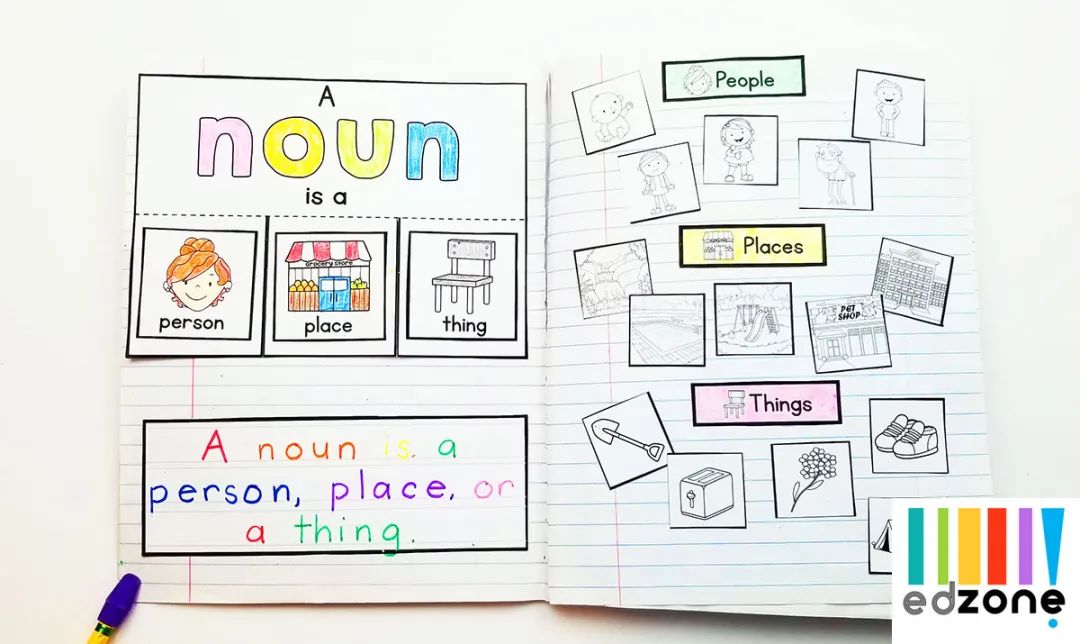 A
noun
is a
grocery store
person
place
thing
A noun is a
person, place, or
a thing.
People
Places
PET
SHOP
Things
edzone!